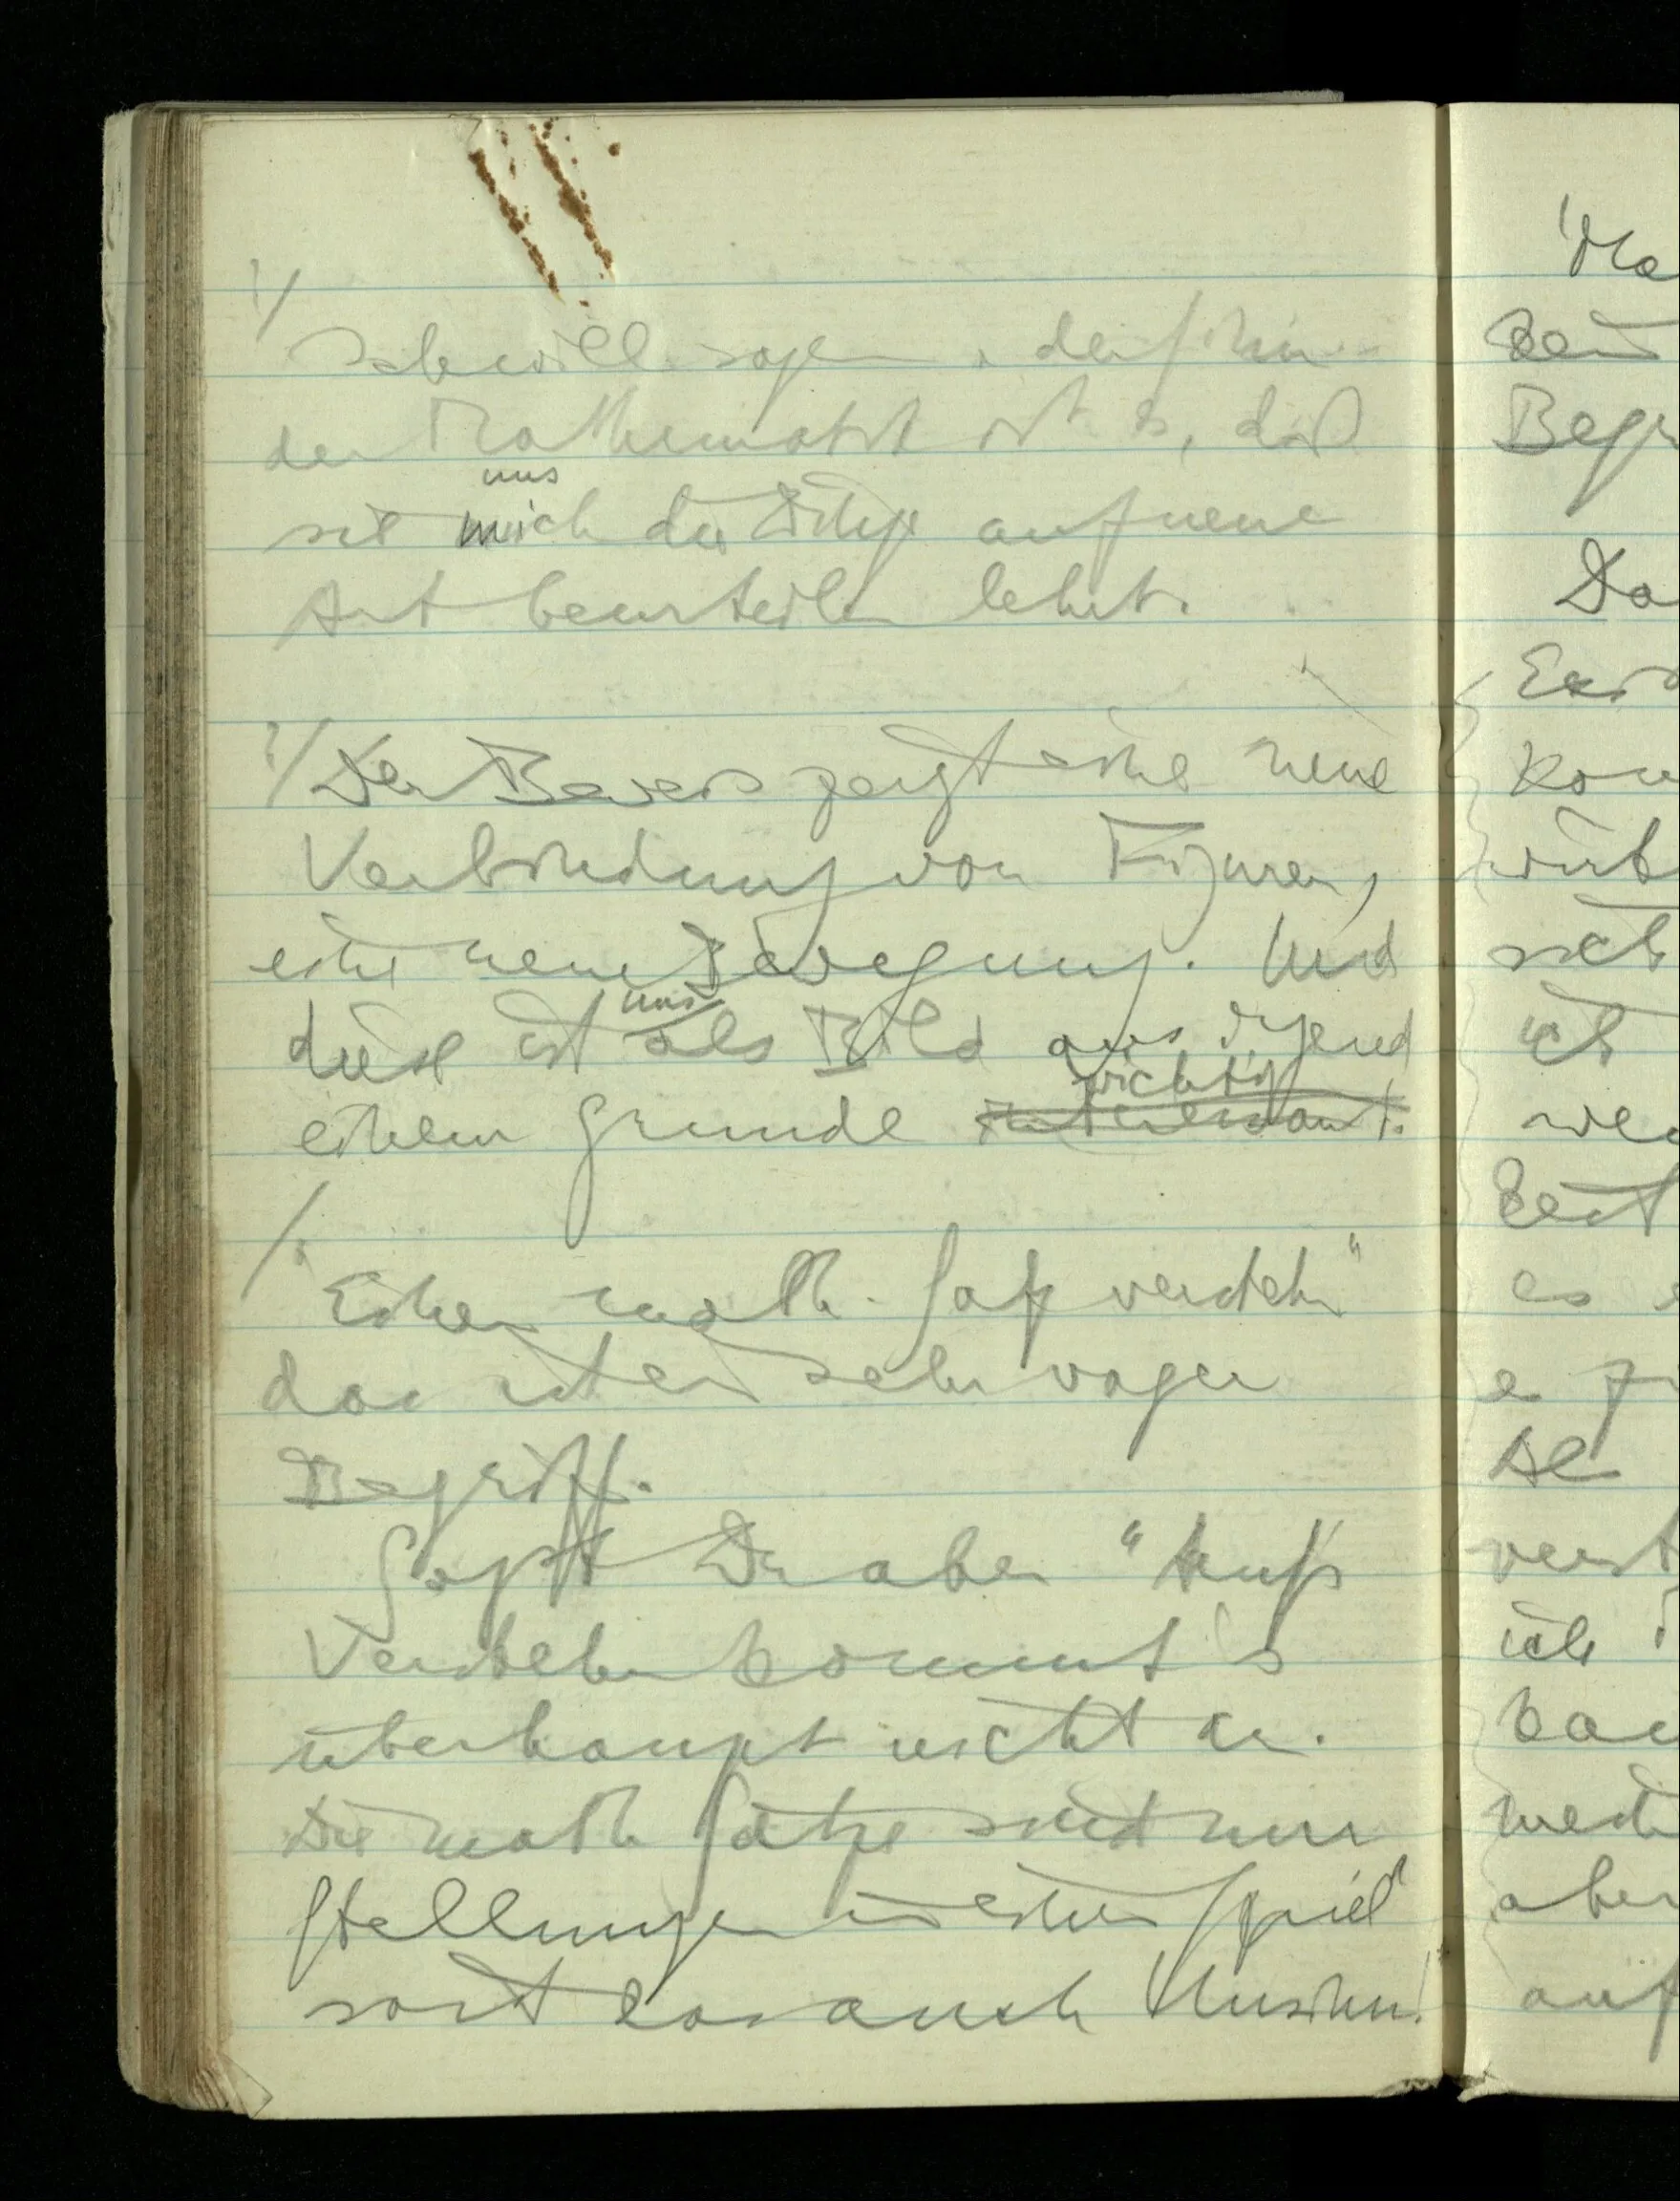 ?/
Ich will sagen, der Sinn
der Mathematik ist es, daß
uns
sie mich die Dinge auf neue
Art beurteilen lehrt.
?/ Der Beweis zeigt eine neue
Verbindung von Figuren,
eine neue Bewegung. Und
uns
diese ist als Bild aus irgend
wichtig
einem Grunde interessant.
/
"Einen math. Satz verstehn"
das ist ein sehr vager
Begriff.
Sagst Du aber "Aufs
Verstehen kommt's
überhaupt nicht an.
Die math Sätze sind nur
Stellungen in einem Spiel"
so ist das auch Unsinn!
Begr
Da
ich
es
aber
auf